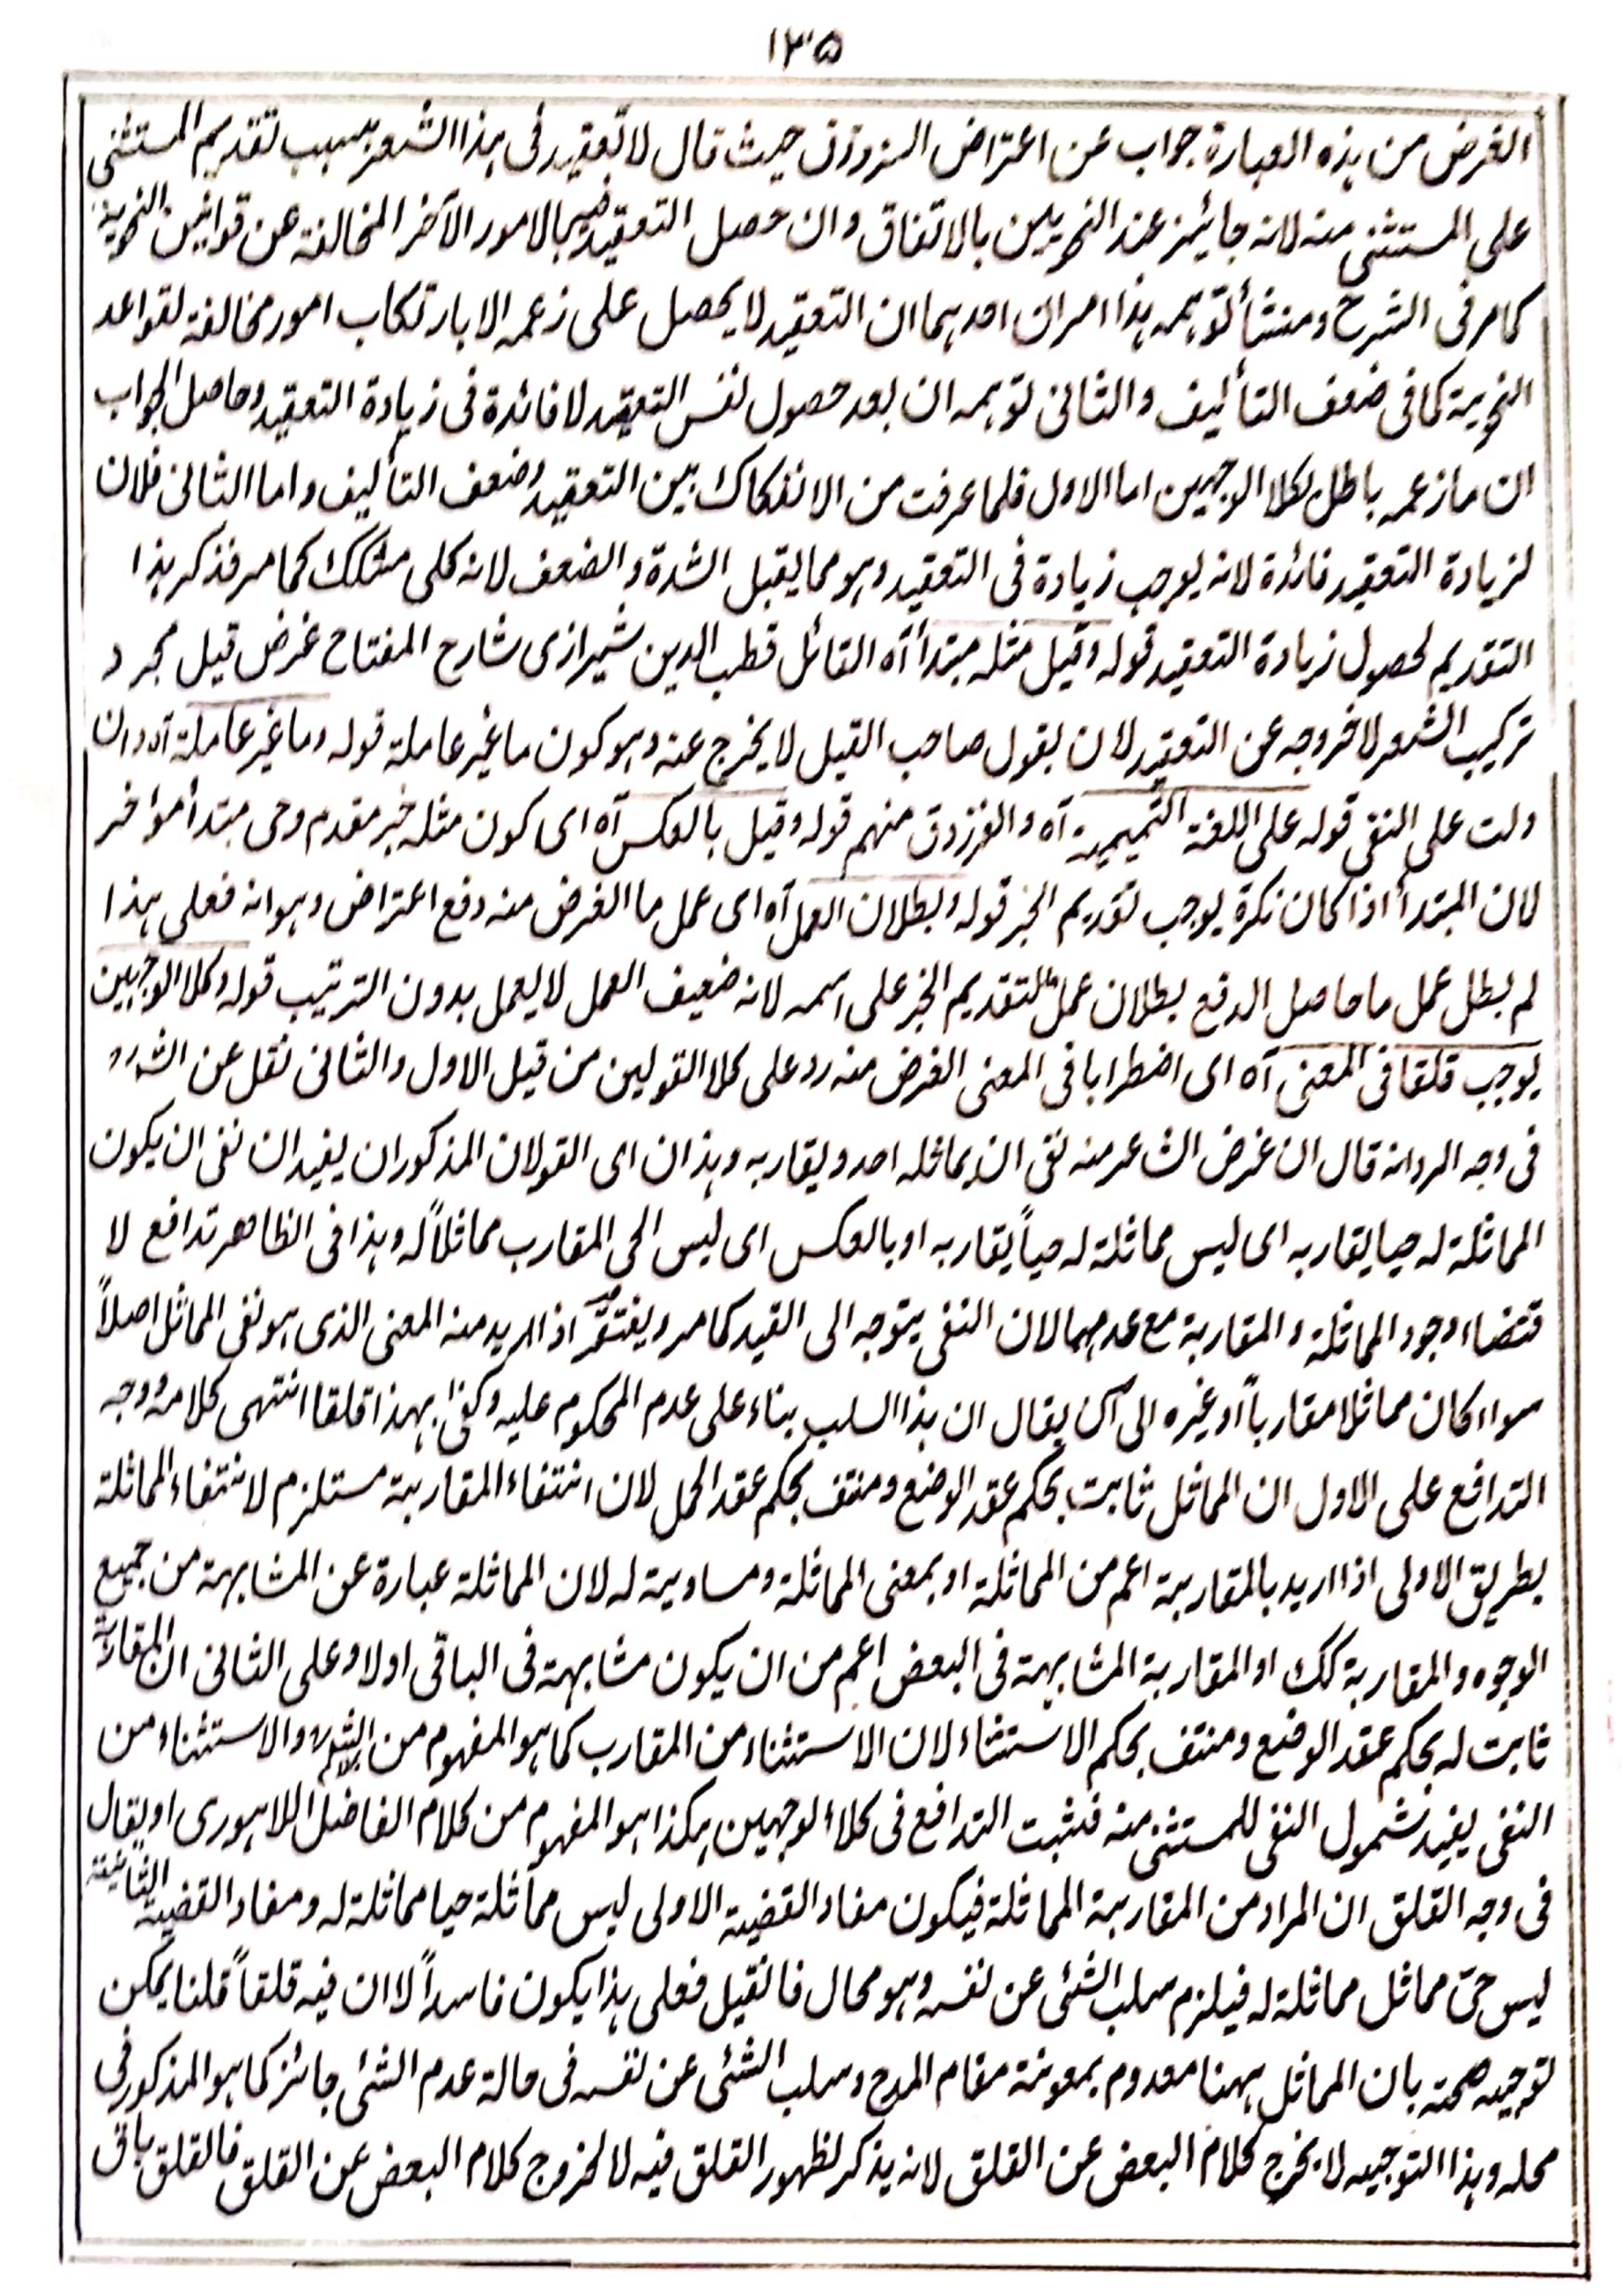 ١٣٥
الغرض من ہذہ العبارة جواب عن اعتراض الزوزنی حیث قال لا تعقید فی ہذا الشعر بسبب تقدیم المستثنی
علی المستثنی منہ لانہ جائیز عند النحویین بالاتفاق وان حصل التعقید فیہ بالامور الآخر المخالفة عن قوانین النحویة
کما مر فی الشرح ومنشأ توہمہ ہذا امران احدہما ان التعقید لا یحصل علی زعمہ الا بارتکاب امور مخالفة لقواعد
النحویة کما فی ضعف التألیف والثانی توہمہ ان بعد حصول نفس التعقید لا فائدة فی زیادة التعقید وحاصل الجواب
ان ما زعمہ باطل لکلا الوجہین اما الاول فلما عرفت من الانفکاک بین التعقید وضعف التألیف واما الثانی فلان
لزیادة التعقید فائدة لانہ یوجب زیادة فی التعقید وہو مما یقبل الشدة والضعف لانہ کلی مشکک کما مر فذکر ہذا
التقدیم لحصول زیادة التعقید قولہ وقیل مثلہ مبتدأ آہ القائل قطب الدین شیرازی شارح المفتاح غرض قیل مجرد
ترکیب الشعر لا خروجہ عن التعقید لان بقول صاحب القیل لا یخرج عنہ وہو کون ما غیر عاملة قولہ وما غیر عاملة آہ وان
دلت علی النفی قولہ علی اللغة التمیمیة آہ والفرزدق منہم قولہ وقیل بالعکس آہ ای کون مثلہ خبر مقدم وحی مبتدأ مؤاخر
لان المبتدأ اذا کان نکرة یوجب تقدیم الخبر قولہ وبطلان العمل آہ ای عمل ما الغرض منہ دفع اعتراض وہو انہ فعلی ہذا
لم بطل عمل ما حاصل الدفع بطلان عمل لتقدیم الخبر علی اسمہ لانہ ضعیف العمل لا یعمل بدون الترتیب قولہ وکلا الوجہین
یوجب قلقا فی المعنی آہ ای اضطرابا فی المعنی الغرض منہ رد علی کلا القولین من قیل الاول والثانی نقل عن
فی وجہ الرد انہ قال ان غرض الشاعر منہ نفی ان یماثلہ احد ویقاربہ وہذان ای القولان المذکوران یفیدان نفی ان یکون
المماثلة لہ حیا یقاربہ ای لیس مماثلة لہ حیاً یقاربہ او بالعکس ای لیس الحی المقارب مماثلاً لہ وہذا فی الظاہر تدافع لا
قتضاء وجود المماثلة والمقاربة مع عدمہما لان النفی یتوجہ الی القید کما مر ویفتقر اذا ارید منہ المعنی الذی ہو نفی المماثل اصلاً
سواء کان مماثلا مقارباً او غیرہ الی ان یقال ان ہذا السلب بناء علی عدم المحکوم علیہ وکفی بہذا قلقا انتہی کلامہ ووجہ
التدافع علی الاول ان المماثل ثابت بحکم عقد الوضع ومنتف بحکم عقد الحمل لان انتفاء المقاربة مستلزم لانتفاء المماثلة
بطریق الاولی اذا ارید بالمقاربة اعم من المماثلة او بمعنی المماثلة ومساویة لہ لان المماثلة عبارة عن المشابہة من جمیع
الوجوہ والمقاربة کک او المقاربة المشابہة فی البعض اعم من ان یکون مشابہة فی الباقی اولا وعلی الثانی ان المقاربة
ثابت لہ بحکم عقد الوضع ومنتف بحکم الاستثناء لان الاستثناء من المقارب کما ہو المفہوم من والاستثناء من
النفی یفید شمول النفی للمستثنی منہ فیثبت التدافع فی کلا الوجہین ہکذا ہو المفہوم من کلام الفاضل اللاہوری او یقال
فی وجہ القلق ان المراد من المقاربة المماثلة فیکون مفاد القضیة الاولی لیس مماثلة حیا مماثلة لہ ومفاد القضیة الثانیة
لیس حی مماثل مماثلة لہ فیلزم سلب الشئی عن نفسہ وہو محال فالقیل فعلی ہذا یکون فاسداً لا ان فیہ قلقاً قلنا یمکن
توجیہ صحتہ بان المماثل ہہنا معدوم بمعونة مقام المدح وسلب الشئی عن نفسہ فی حالة عدم الشئی جائز کما ہو المذکور فی
محلہ وہذا التوجیہ لا یخرج کلام البعض عن القلق لانہ یذکر لظہور القلق فیہ لا لخروج کلام البعض عن القلق فالقلق باق